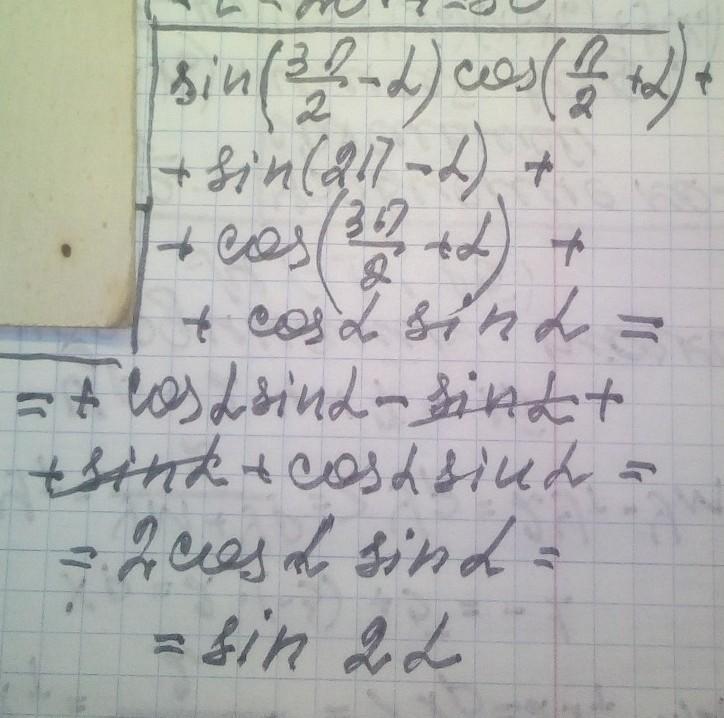 sin(3π/2 - α) cos(π/2 + α) +
+ sin(2π - α) +
+ cos(3π/2 + α) +
+ cosα sin α =
= + cosα sinα - sinα +
+ sinα + cosα sinα =
= 2 cosα sinα =
= sin 2α